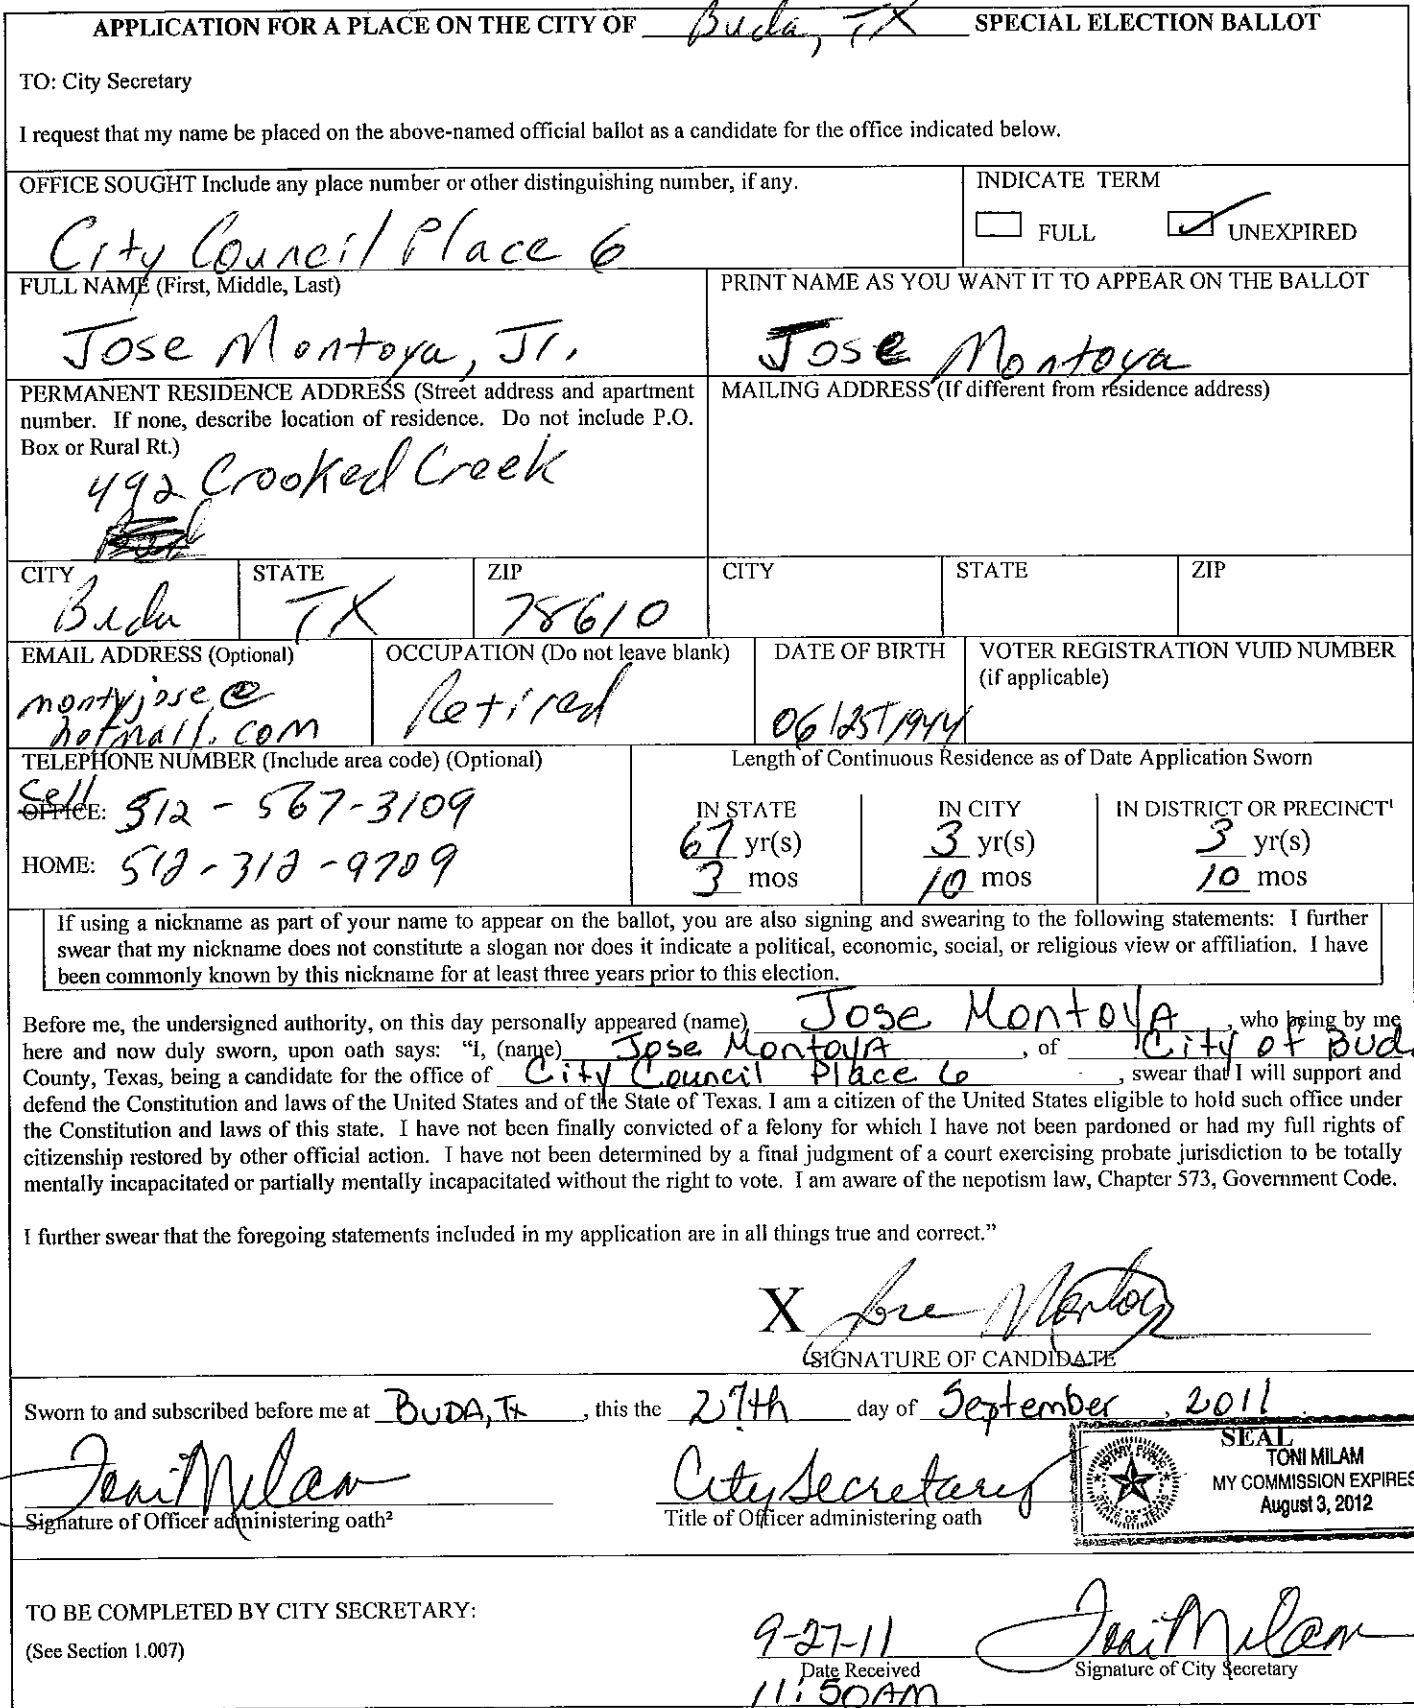 APPLICATION FOR A PLACE ON THE CITY OF Buda, TX SPECIAL ELECTION BALLOT
TO: City Secretary
I request that my name be placed on the above-named official ballot as a candidate for the office indicated below.
OFFICE SOUGHT Include any place number or other distinguishing number, if any.
City Council Place 6
INDICATE TERM
FULL ✓ UNEXPIRED
FULL NAME (First, Middle, Last)
Jose Montoya, Jr.
PRINT NAME AS YOU WANT IT TO APPEAR ON THE BALLOT
Jose Montoya
PERMANENT RESIDENCE ADDRESS (Street address and apartment
number. If none, describe location of residence. Do not include P.O.
Box or Rural Rt.)
492 Crooked Creek
MAILING ADDRESS (If different from residence address)
CITY STATE ZIP CITY STATE ZIP
Buda TX 78610
EMAIL ADDRESS (Optional)
montyjose@
hotmail.com
OCCUPATION (Do not leave blank)
Retired
DATE OF BIRTH
06/25/1944
VOTER REGISTRATION VUID NUMBER
(if applicable)
TELEPHONE NUMBER (Include area code) (Optional)
Cell
OFFICE: 512-567-3109
HOME: 512-312-9709
Length of Continuous Residence as of Date Application Sworn
IN STATE IN CITY IN DISTRICT OR PRECINCT¹
67 yr(s) 3 yr(s) 3 yr(s)
3 mos 10 mos 10 mos
If using a nickname as part of your name to appear on the ballot, you are also signing and swearing to the following statements: I further
swear that my nickname does not constitute a slogan nor does it indicate a political, economic, social, or religious view or affiliation. I have
been commonly known by this nickname for at least three years prior to this election.
Before me, the undersigned authority, on this day personally appeared (name) Jose MontoyA, who being by me
here and now duly sworn, upon oath says: "I, (name) Jose MontoyA, of City of Bud
County, Texas, being a candidate for the office of City Council Place 6, swear that I will support and
defend the Constitution and laws of the United States and of the State of Texas. I am a citizen of the United States eligible to hold such office under
the Constitution and laws of this state. I have not been finally convicted of a felony for which I have not been pardoned or had my full rights of
citizenship restored by other official action. I have not been determined by a final judgment of a court exercising probate jurisdiction to be totally
mentally incapacitated or partially mentally incapacitated without the right to vote. I am aware of the nepotism law, Chapter 573, Government Code.
I further swear that the foregoing statements included in my application are in all things true and correct."
X Jose Montoya
SIGNATURE OF CANDIDATE
Sworn to and subscribed before me at BUDA, Tx, this the 27th day of September, 2011.
SEAL
NOTARY PUBLIC
STATE OF TEXAS
TONI MILAM
MY COMMISSION EXPIRES
August 3, 2012
Toni Milam City Secretary
Signature of Officer administering oath² Title of Officer administering oath
TO BE COMPLETED BY CITY SECRETARY:
(See Section 1.007)
9-27-11 Toni Milam
Date Received Signature of City Secretary
11:50AM